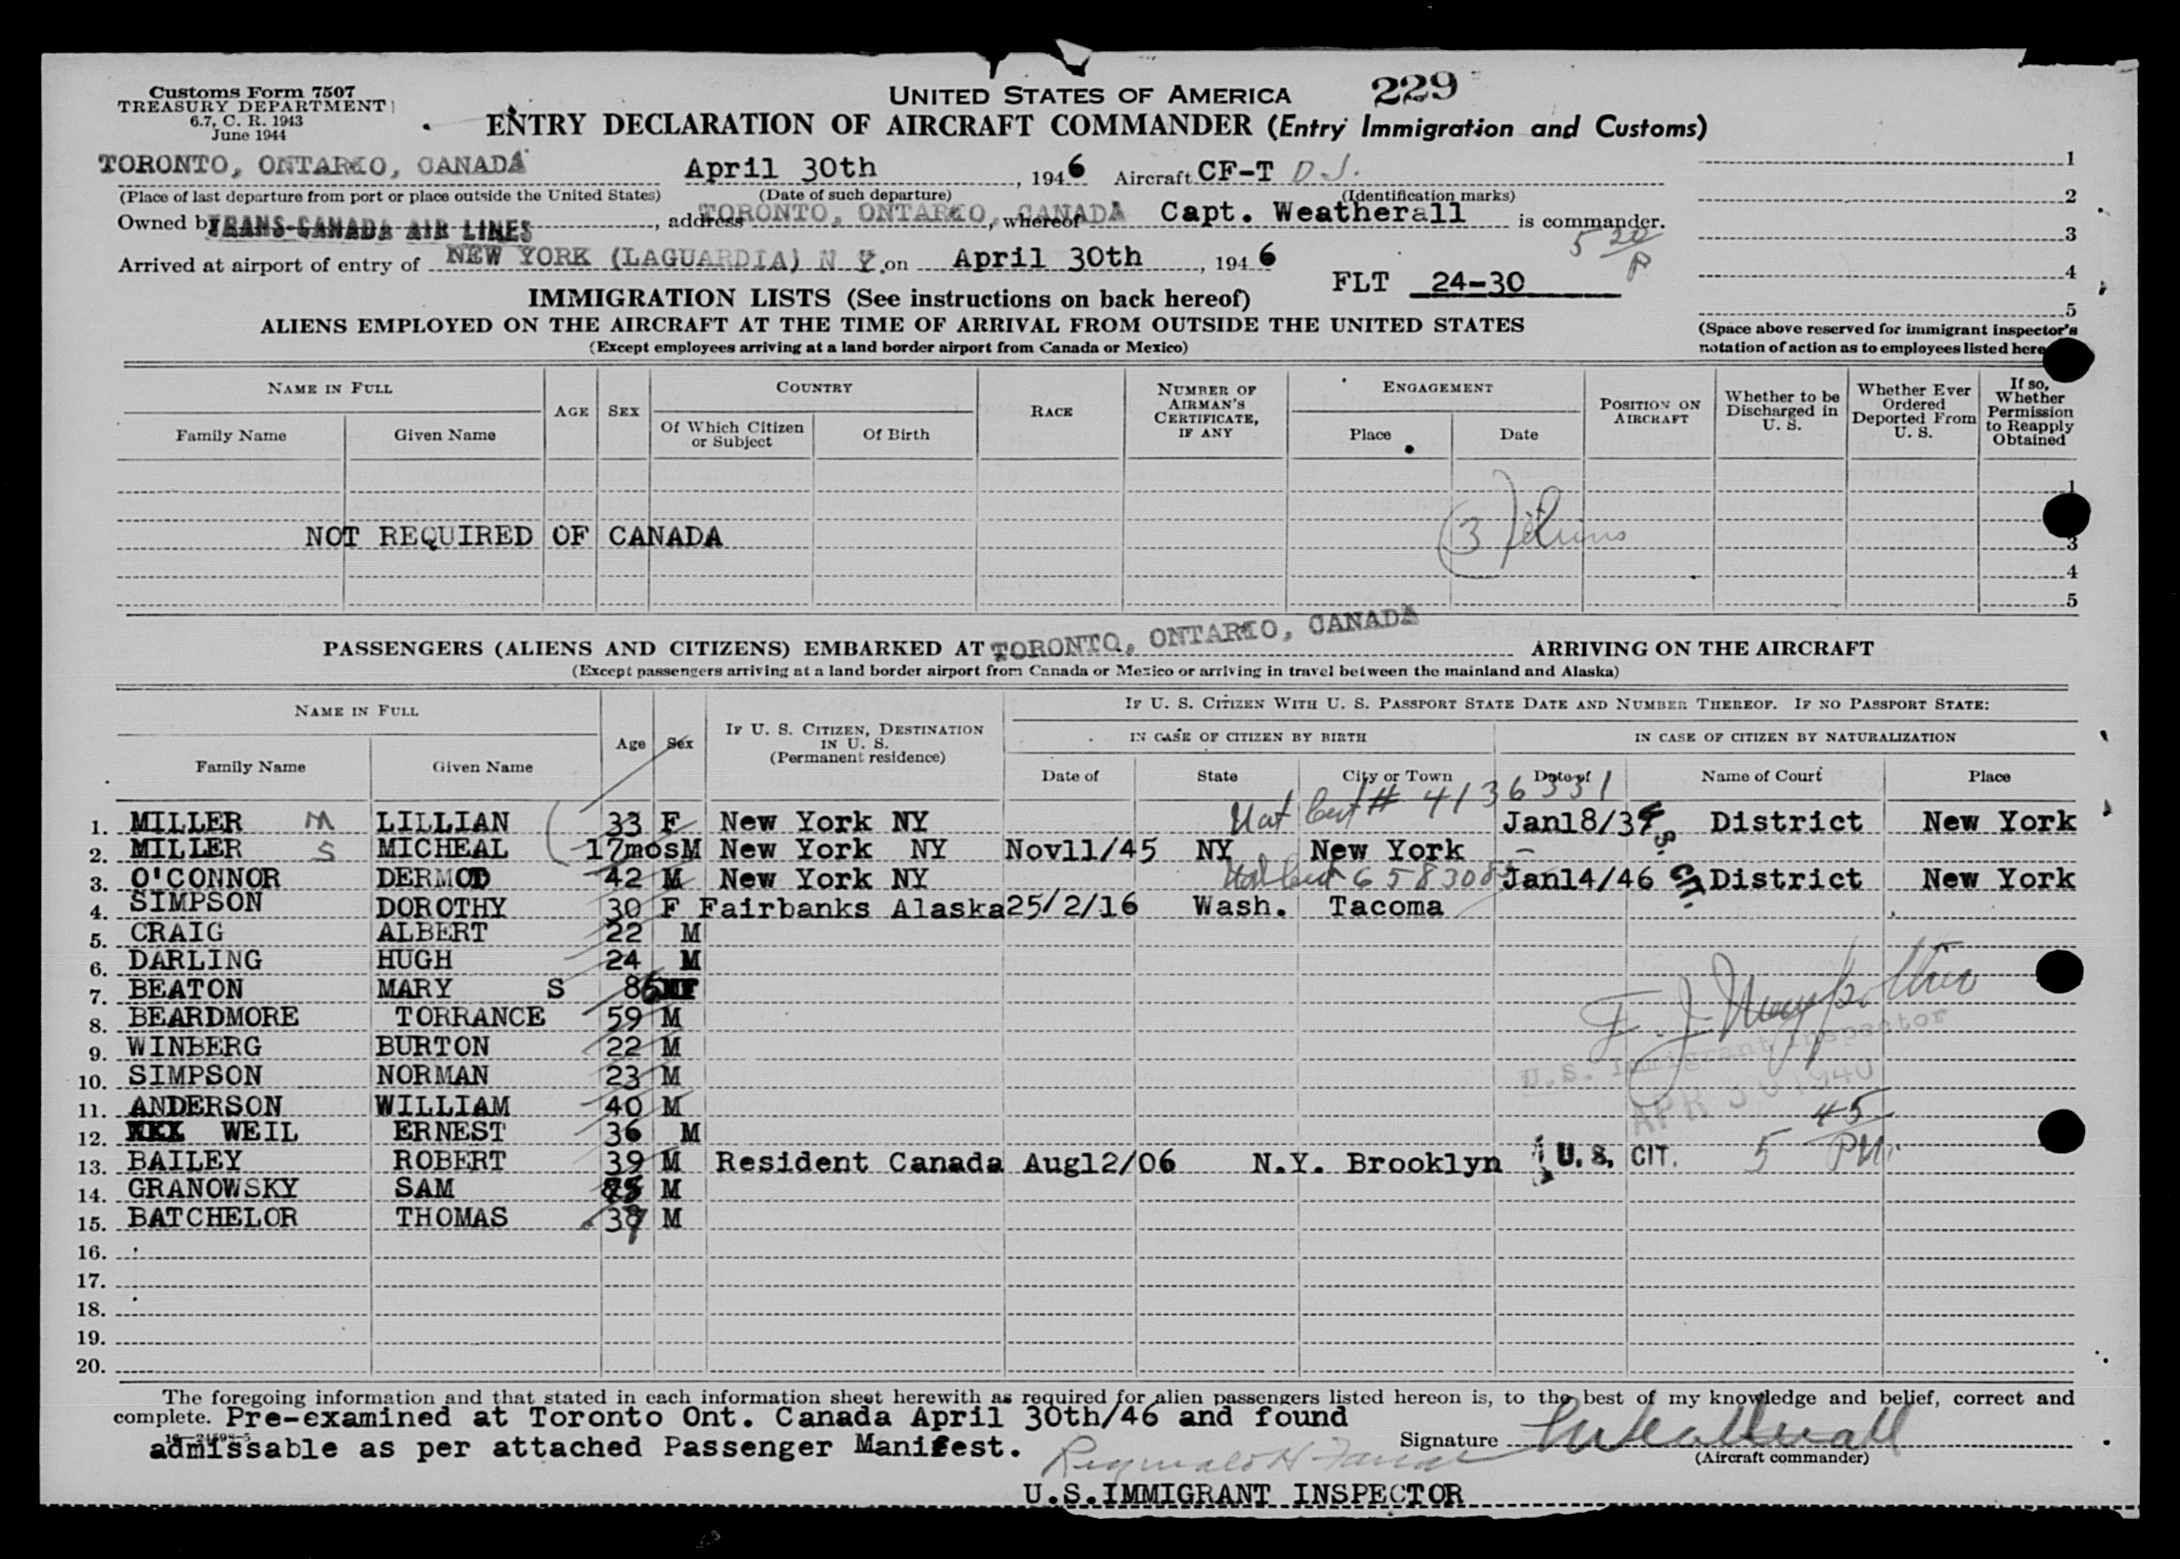 Customs Form 7507
TREASURY DEPARTMENT
6.7, C. R. 1943
June 1944
UNITED STATES OF AMERICA 229
ENTRY DECLARATION OF AIRCRAFT COMMANDER (Entry Immigration and Customs)
TORONTO, ONTARIO, CANADA April 30th, 1946 Aircraft CF-T D J.
(Place of last departure from port or place outside the United States) (Date of such departure) (Identification marks)
Owned by TRANS-CANADA AIR LINES, address TORONTO, ONTARIO, CANADA, whereof Capt. Weatherall is commander.
Arrived at airport of entry of NEW YORK (LAGUARDIA) N Y. on April 30th, 1946
5 20/P
FLT 24-30
1
2
3
4
5
(Space above reserved for immigrant inspector's
notation of action as to employees listed here
IMMIGRATION LISTS (See instructions on back hereof)
ALIENS EMPLOYED ON THE AIRCRAFT AT THE TIME OF ARRIVAL FROM OUTSIDE THE UNITED STATES
(Except employees arriving at a land border airport from Canada or Mexico)
NAME IN FULL AGE SEX COUNTRY RACE NUMBER OF AIRMAN'S CERTIFICATE, IF ANY ENGAGEMENT POSITION ON AIRCRAFT Whether to be Discharged in U. S. Whether Ever Ordered Deported From U. S. If so, Whether Permission to Reapply Obtained
Family Name Given Name Of Which Citizen or Subject Of Birth Place Date
1
NOT REQUIRED OF CANADA (3) 3
4
5
PASSENGERS (ALIENS AND CITIZENS) EMBARKED AT TORONTO, ONTARIO, CANADA ARRIVING ON THE AIRCRAFT
(Except passengers arriving at a land border airport from Canada or Mexico or arriving in travel between the mainland and Alaska)
NAME IN FULL Age Sex IF U. S. CITIZEN, DESTINATION IN U. S. (Permanent residence) IF U. S. CITIZEN WITH U. S. PASSPORT STATE DATE AND NUMBER THEREOF. IF NO PASSPORT STATE:
IN CASE OF CITIZEN BY BIRTH IN CASE OF CITIZEN BY NATURALIZATION
Family Name Given Name Date of State City or Town Date of Name of Court Place
Nat Cert # 4136331
1. MILLER M LILLIAN 33 F New York NY Jan18/37 District New York
2. MILLER S MICHEAL 17mos M New York NY Nov11/45 NY New York
U.S. CIT.
3. O'CONNOR DERMOD 42 M New York NY Nat Cert Jan14/46 District New York
4. SIMPSON DOROTHY 30 F Fairbanks Alaska 25/2/16 Wash. Tacoma
5. CRAIG ALBERT 22 M
6. DARLING HUGH 24 M
7. BEATON MARY S 86
8. BEARDMORE TORRANCE 59 M
9. WINBERG BURTON 22 M
U.S. Immigrant Inspector
10. SIMPSON NORMAN 23 M
11. ANDERSON WILLIAM 40 M
12. WEIL ERNEST 36 M
13. BAILEY ROBERT 39 M Resident Canada Aug12/06 N.Y. Brooklyn U. S. CIT. 5 45/PM
14. GRANOWSKY SAM M
15. BATCHELOR THOMAS M
16.
17.
18.
19.
20.
The foregoing information and that stated in each information sheet herewith as required for alien passengers listed hereon is, to the best of my knowledge and belief, correct and
complete. Pre-examined at Toronto Ont. Canada April 30th/46 and found
admissable as per attached Passenger Manifest.
Signature Weatherall
(Aircraft commander)
U.S.IMMIGRANT INSPECTOR